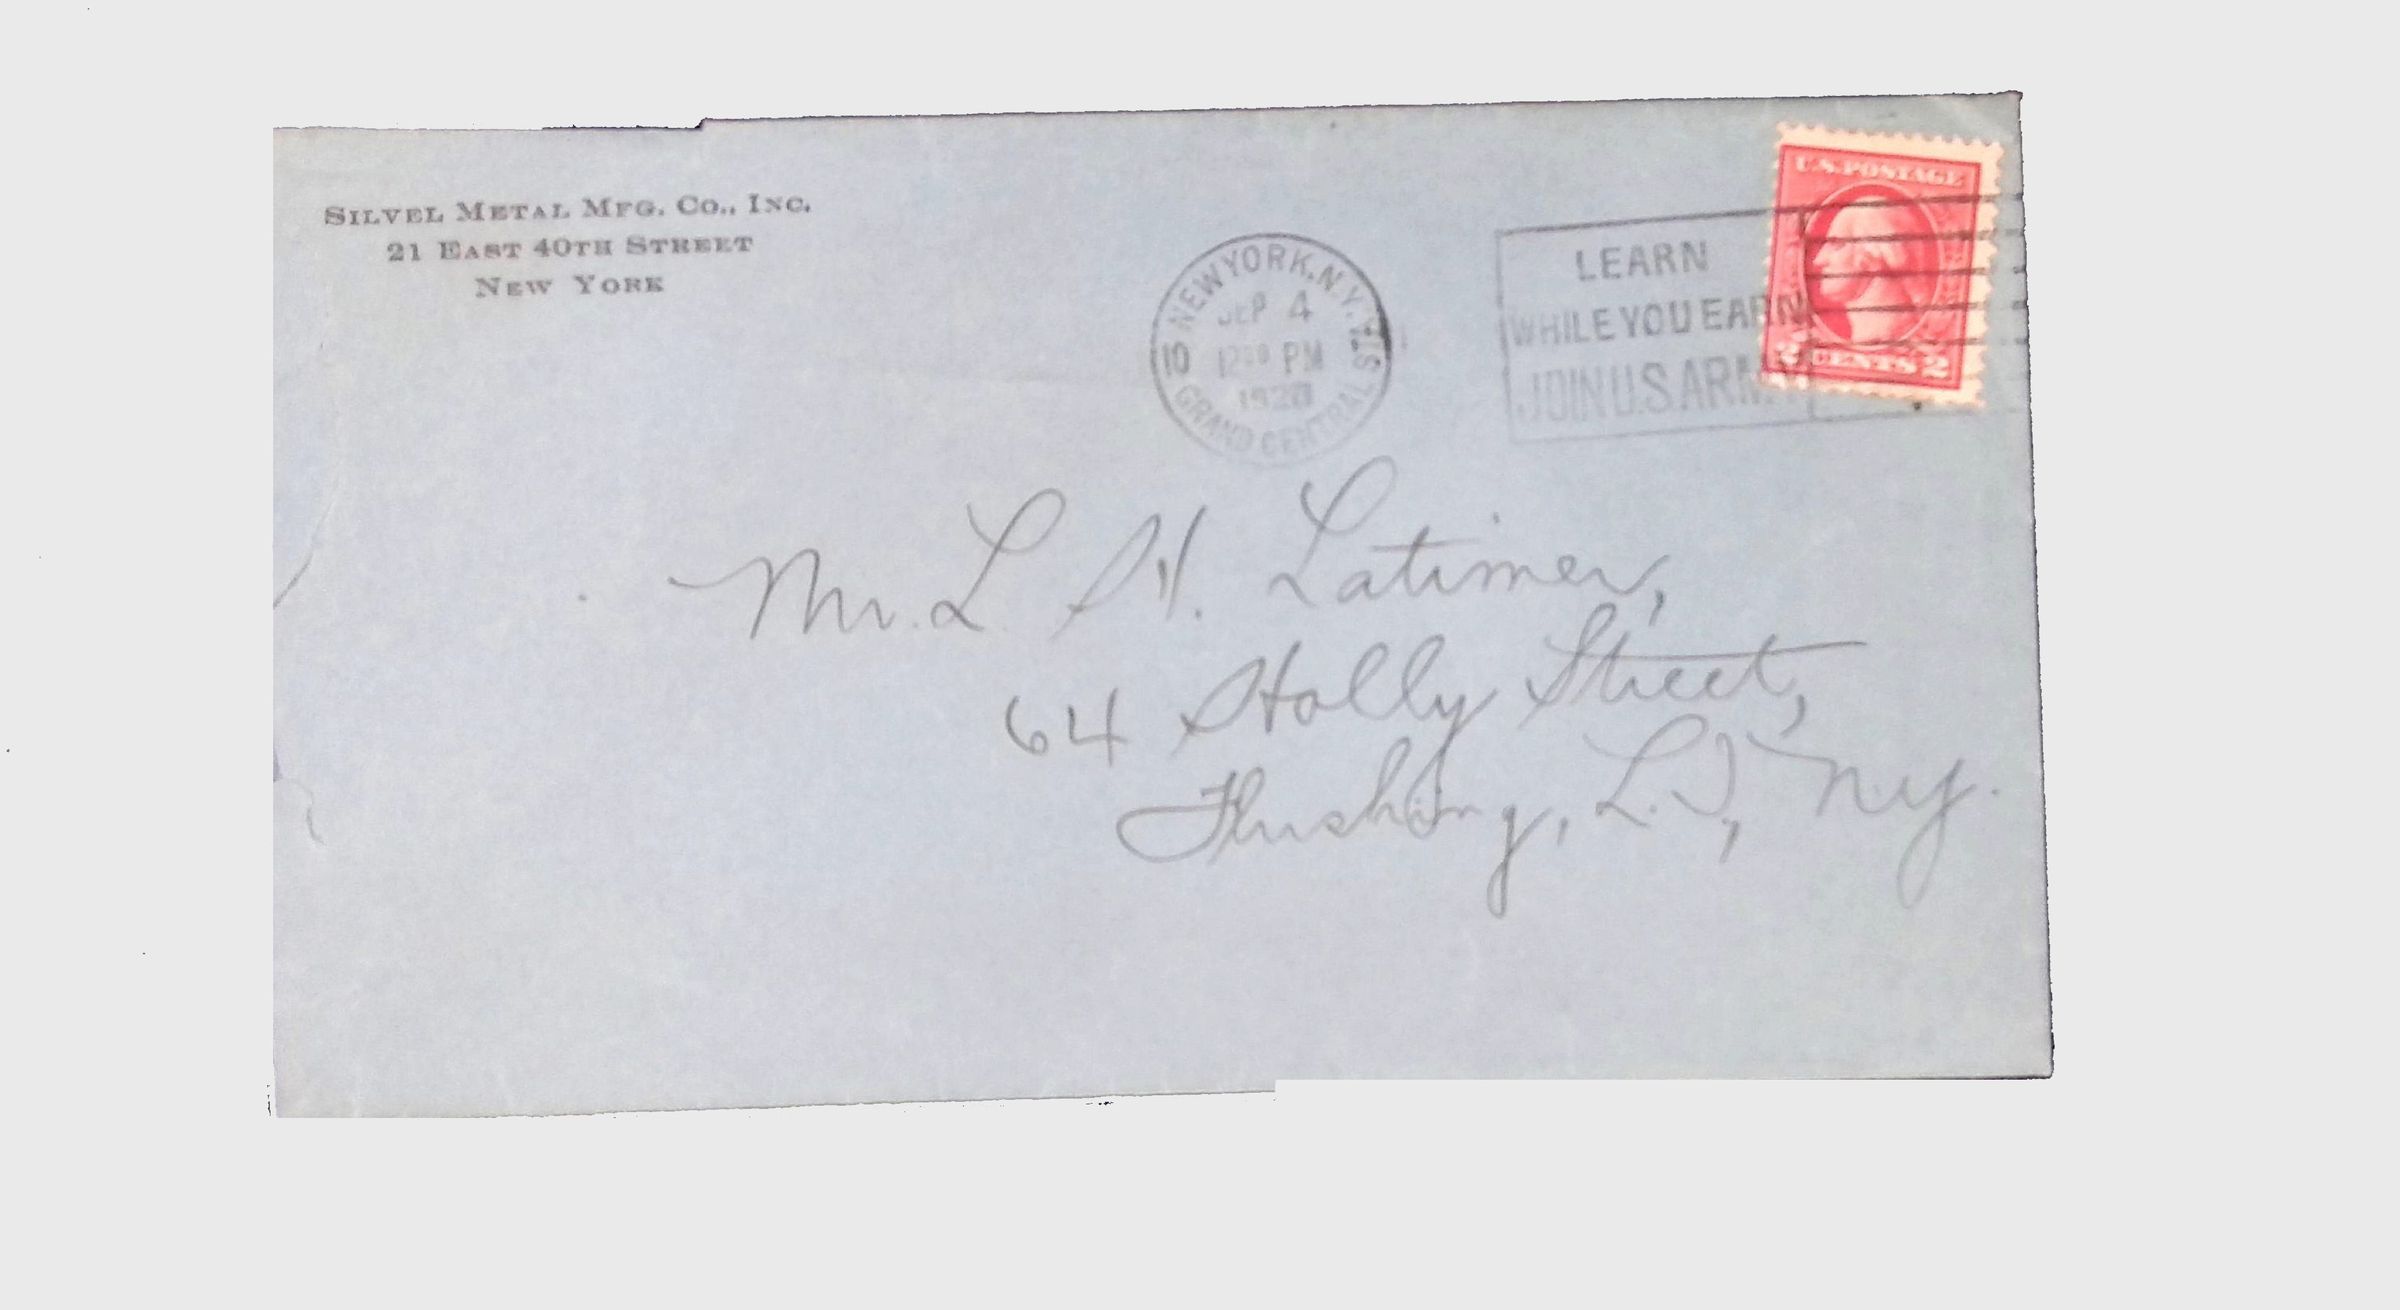 SILVEL METAL MFG. CO., INC.
21 EAST 40TH STREET
NEW YORK
NEW YORK, N.Y.
STA.
10
SEP 4
PM
1920
GRAND CENTRAL
LEARN
WHILE YOU EARN
JOIN U.S. ARMY
U.S. POSTAGE
2 CENTS 2
Mr. L H. Latimer,
64 Holly Street,
Flushing, L.I., N.Y.